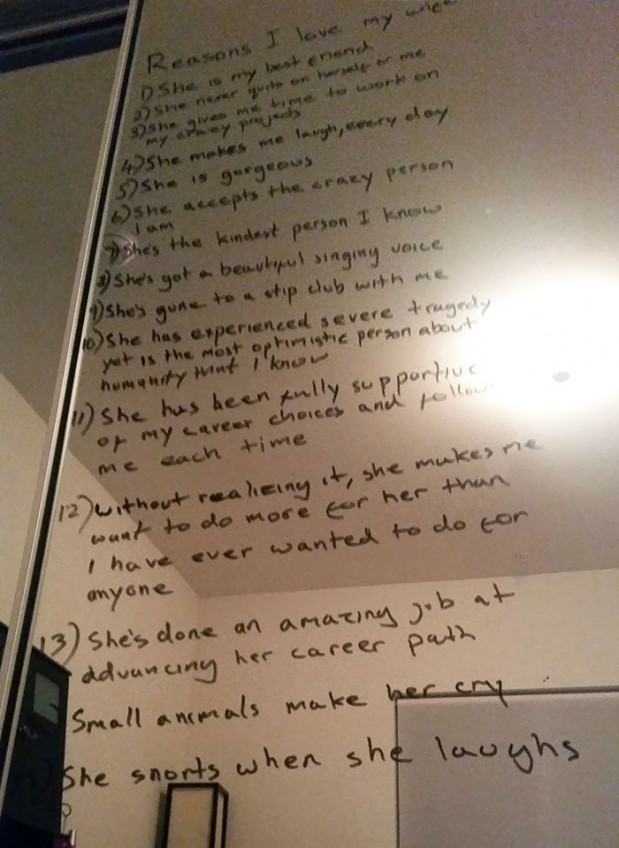 Reasons I love my wife
1) She is my best friend
2) She never quits on herself or me
3) She gives me time to work on
my crazy projects
4) She makes me laugh, every day
5) She is gorgeous
6) She accepts the crazy person
I am
7) She's the kindest person I know
8) She's got a beautiful singing voice
9) She's gone to a stip club with me
10) She has experienced severe tragedy
yet is the most optimistic person about
humanity that I know
11) She has been fully supportive
of my career choices and follow
me each time
12) without realizing it, she makes me
want to do more for her than
I have ever wanted to do for
anyone
13) She's done an amazing job at
advancing her career path
Small animals make her cry
She snorts when she laughs